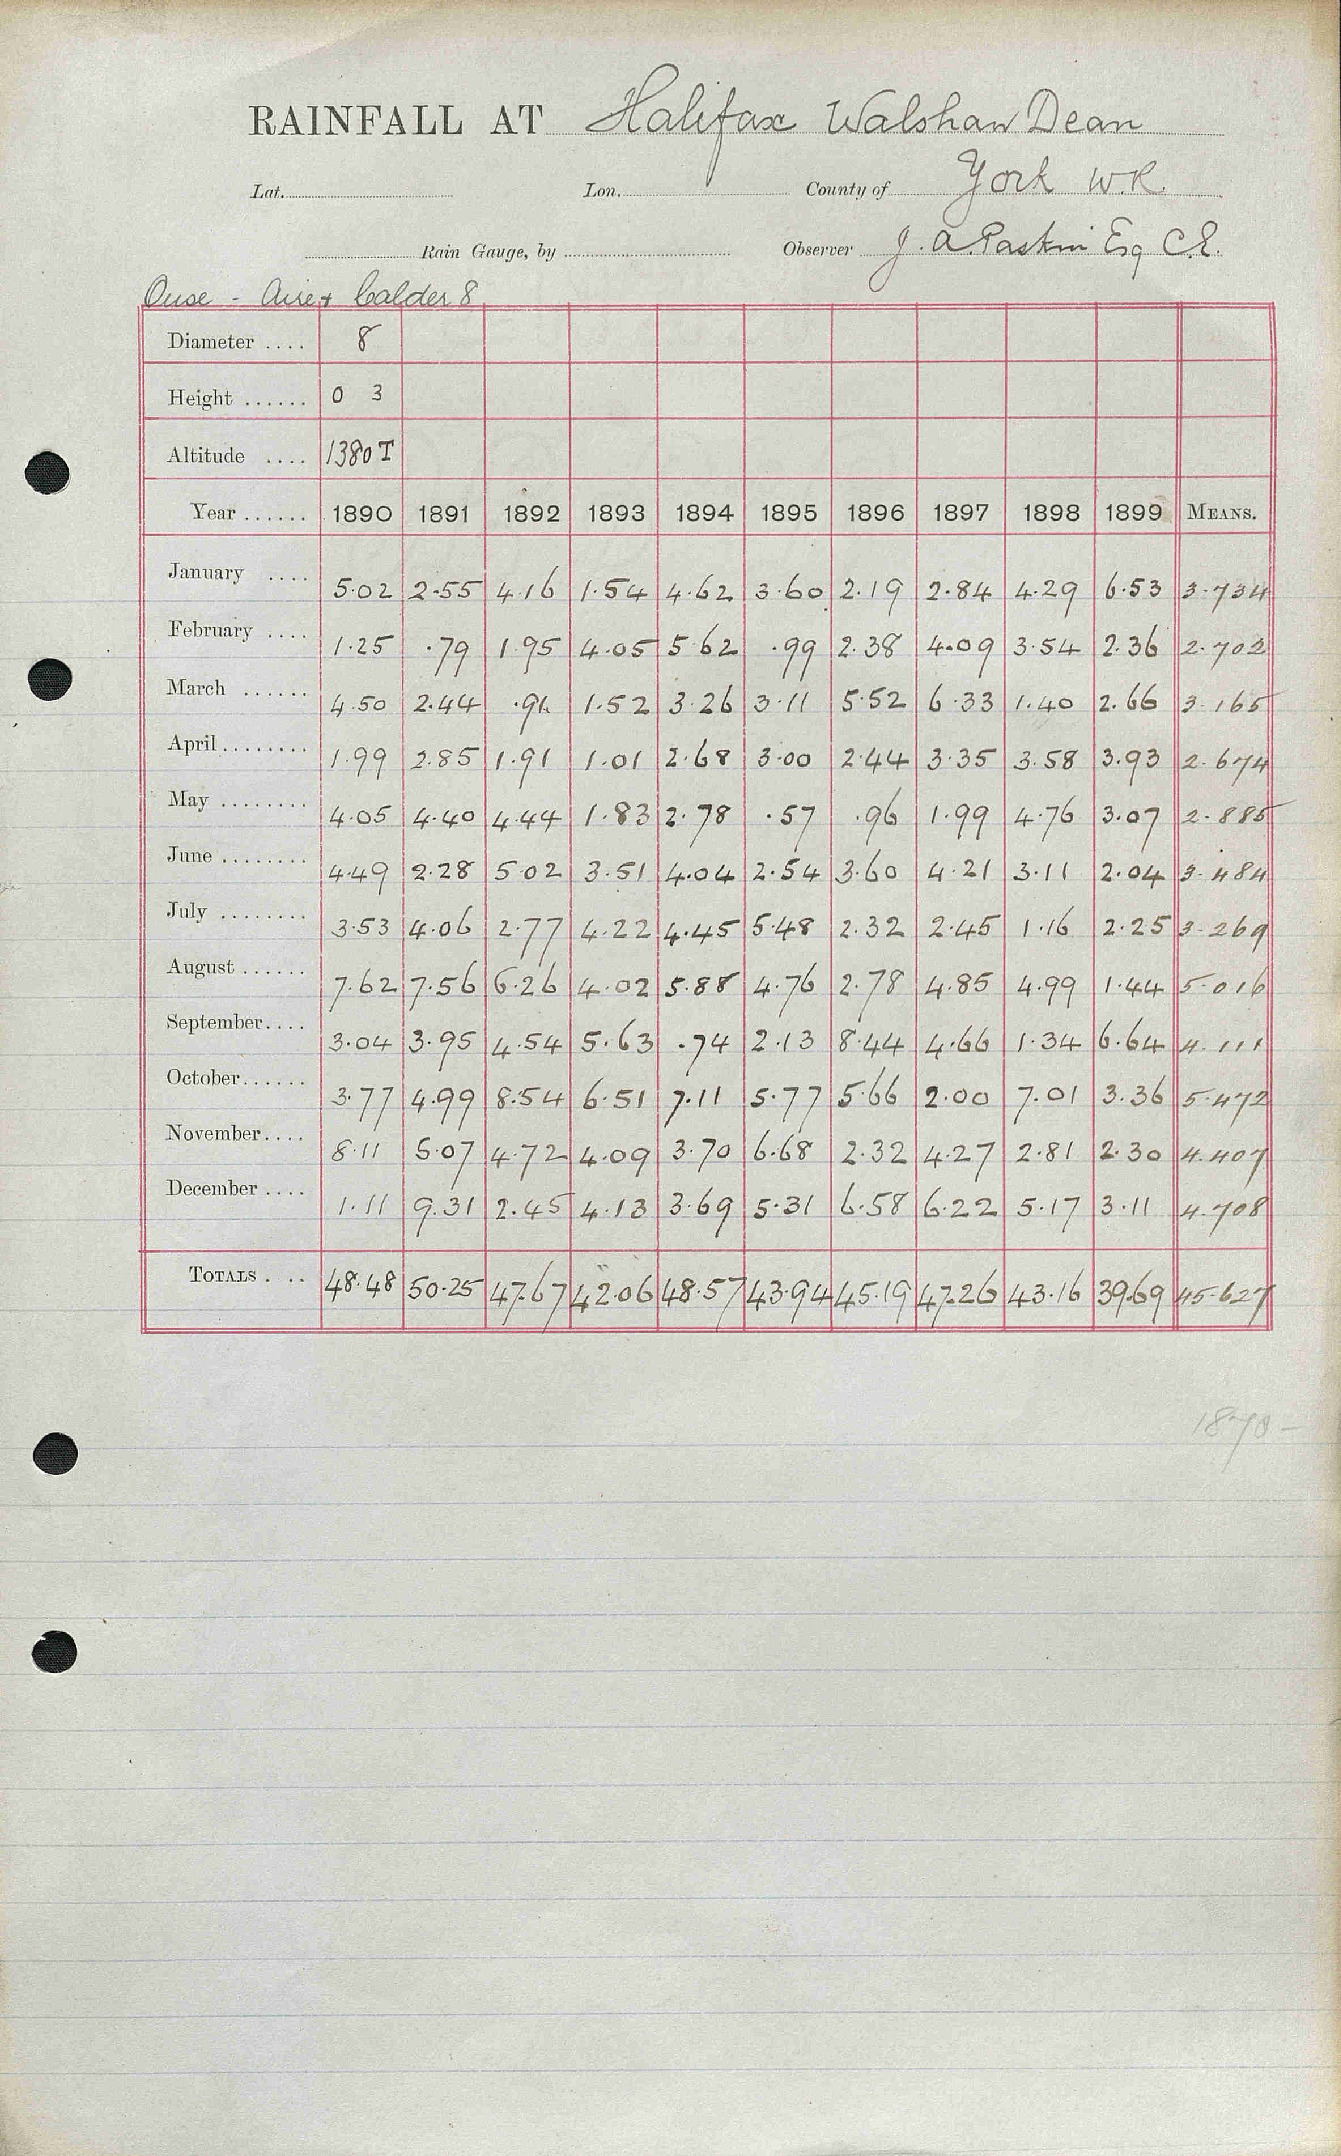 RAINFALL AT Halifax Walshaw Dean
Lat. Lon. County of York W.R.
Rain Gauge, by Observer J. A. Paskin Esq C.E.
Ouse - Aire & Calder 8
Diameter .... 8
Height ...... 0 3
Altitude .... 1380 T
Year ...... 1890 1891 1892 1893 1894 1895 1896 1897 1898 1899 MEANS.
January .... 5.02 2.55 4.16 1.54 4.62 3.60 2.19 2.84 4.29 6.53 3.734
February .... 1.25 .79 1.95 4.05 5.62 .99 2.38 4.09 3.54 2.36 2.702
March ...... 4.50 2.44 .91 1.52 3.26 3.11 5.52 6.33 1.40 2.66 3.165
April........ 1.99 2.85 1.91 1.01 2.68 3.00 2.44 3.35 3.58 3.93 2.674
May ........ 4.05 4.40 4.44 1.83 2.78 .57 .96 1.99 4.76 3.07 2.885
June ........ 4.49 2.28 5.02 3.51 4.04 2.54 3.60 4.21 3.11 2.04 3.484
July ........ 3.53 4.06 2.77 4.22 4.45 5.48 2.32 2.45 1.16 2.25 3.269
August ...... 7.62 7.56 6.26 4.02 5.88 4.76 2.78 4.85 4.99 1.44 5.016
September.... 3.04 3.95 4.54 5.63 .74 2.13 8.44 4.66 1.34 6.64 4.111
October...... 3.77 4.99 8.54 6.51 7.11 5.77 5.66 2.00 7.01 3.36 5.472
November.... 8.11 5.07 4.72 4.09 3.70 6.68 2.32 4.27 2.81 2.30 4.407
December .... 1.11 9.31 2.45 4.13 3.69 5.31 6.58 6.22 5.17 3.11 4.708
TOTALS . .. 48.48 50.25 47.67 42.06 48.57 43.94 45.19 47.26 43.16 39.69 45.627
1870-